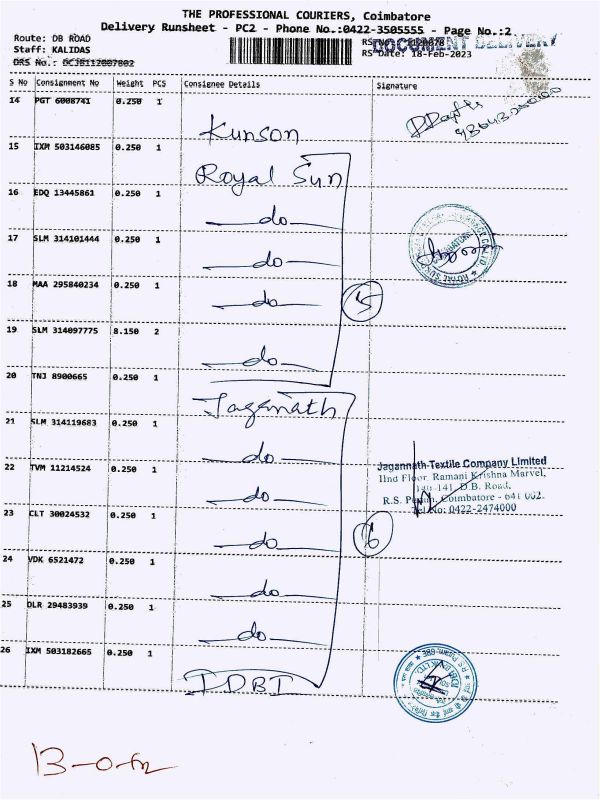 THE PROFESSIONAL COURIERS, Coimbatore
Delivery Runsheet - PC2 - Phone No.:0422-3505555 - Page No.:2
Route: DB ROAD
DOCUMENT DELIVERY
Staff: KALIDAS
RS Date: 18-Feb-2023
DRS No.: DCJB112007802
S No Consignment No Weight PCS Consignee Details Signature
14 PGT 6008741 0.250 1
Kunson
15 IXM 503146085 0.250 1
Royal Sun
16 EDQ 13445861 0.250 1
do
17 SLM 314101444 0.250 1
do
18 MAA 295840234 0.250 1
do
5
19 SLM 314097775 8.150 2
do
20 TNJ 8900665 0.250 1
Jagannath
21 SLM 314119683 0.250 1
do
Jagannath Textile Company Limited
IInd Floor, Ramani Krishna Marvel,
D.B. Road,
R.S. Coimbatore - 641 002.
Tel No: 0422-2474000
22 TVM 11214524 0.250 1
do
23 CLT 30024532 0.250 1
do
6
24 VDK 6521472 0.250 1
do
25 DLR 29483939 0.250 1
do
26 IXM 503182665 0.250 1
IDBI
IDBI BANK LTD.